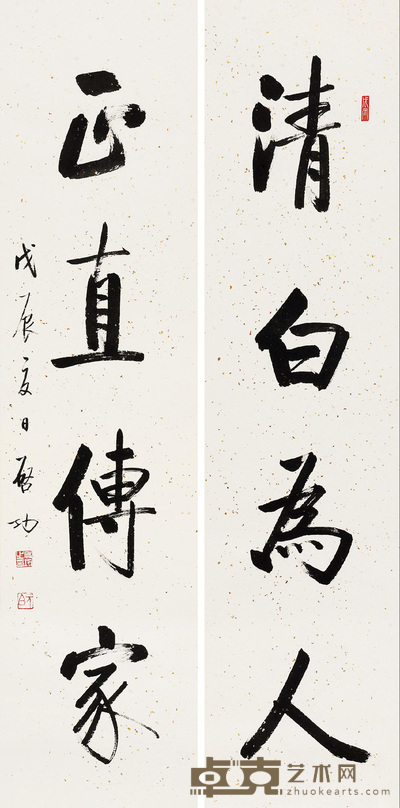 清白為人
正直傳家
戊辰夏日啓功
卓克艺术网
zhuokearts.com